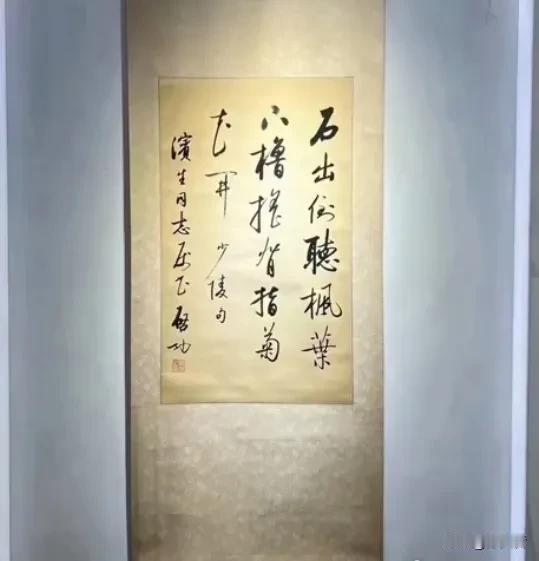 石出倒聽楓葉
下櫓搖背指菊
花開 少陵句
濱生同志屬正 啓功